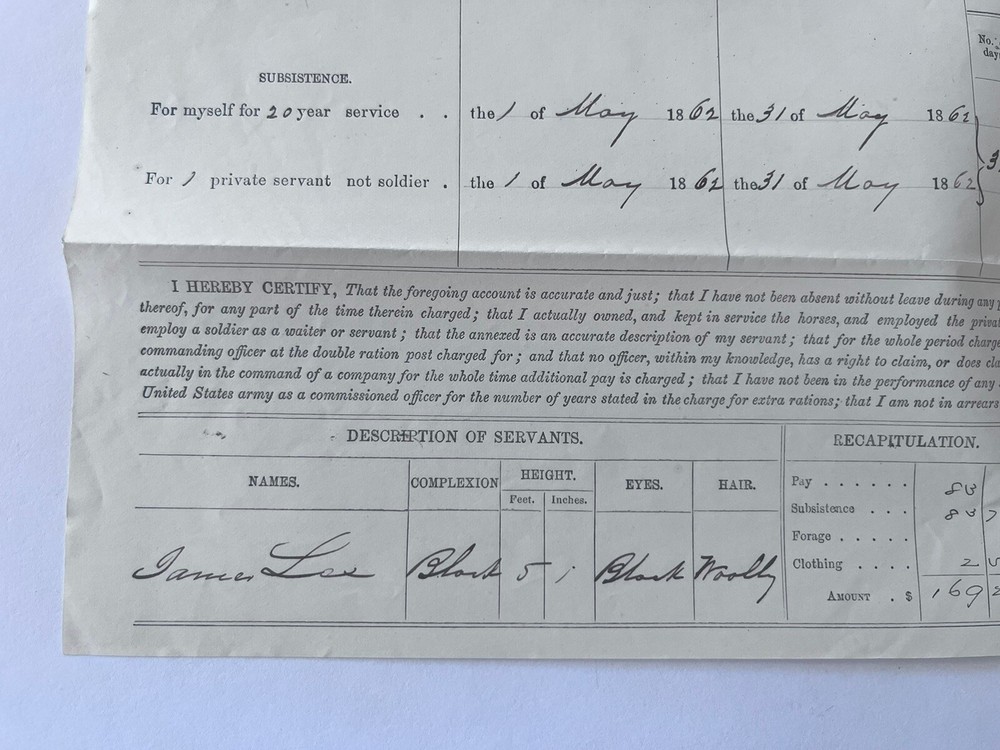 No.
day
SUBSISTENCE.
For myself for 20 year service . . the 1 of May 1862 the 31 of May 1862
For 1 private servant not soldier . the 1 of May 1862 the 31 of May 1862
3
I HEREBY CERTIFY, That the foregoing account is accurate and just; that I have not been absent without leave during any
thereof, for any part of the time therein charged; that I actually owned, and kept in service the horses, and employed the privat
employ a soldier as a waiter or servant; that the annexed is an accurate description of my servant; that for the whole period charge
commanding officer at the double ration post charged for; and that no officer, within my knowledge, has a right to claim, or does cla
actually in the command of a company for the whole time additional pay is charged; that I have not been in the performance of any
United States army as a commissioned officer for the number of years stated in the charge for extra rations; that I am not in arrears
DESCRIPTION OF SERVANTS. RECAPITULATION.
NAMES. COMPLEXION HEIGHT. EYES. HAIR.
Feet. Inches.
James Lee Black 5 1 Black Woolly
Pay . . . . . . 83
Subsistence . . . 83 7
Forage . . . . .
Clothing . . . . 2
AMOUNT . $ 169 2